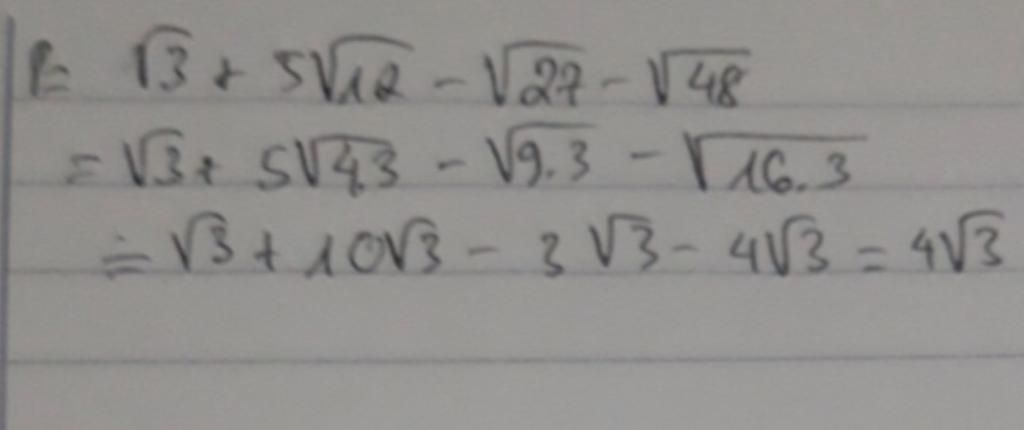 P= √3 + 5√12 - √27 - √48
= √3 + 5√4.3 - √9.3 - √16.3
= √3 + 10√3 - 3√3 - 4√3 = 4√3